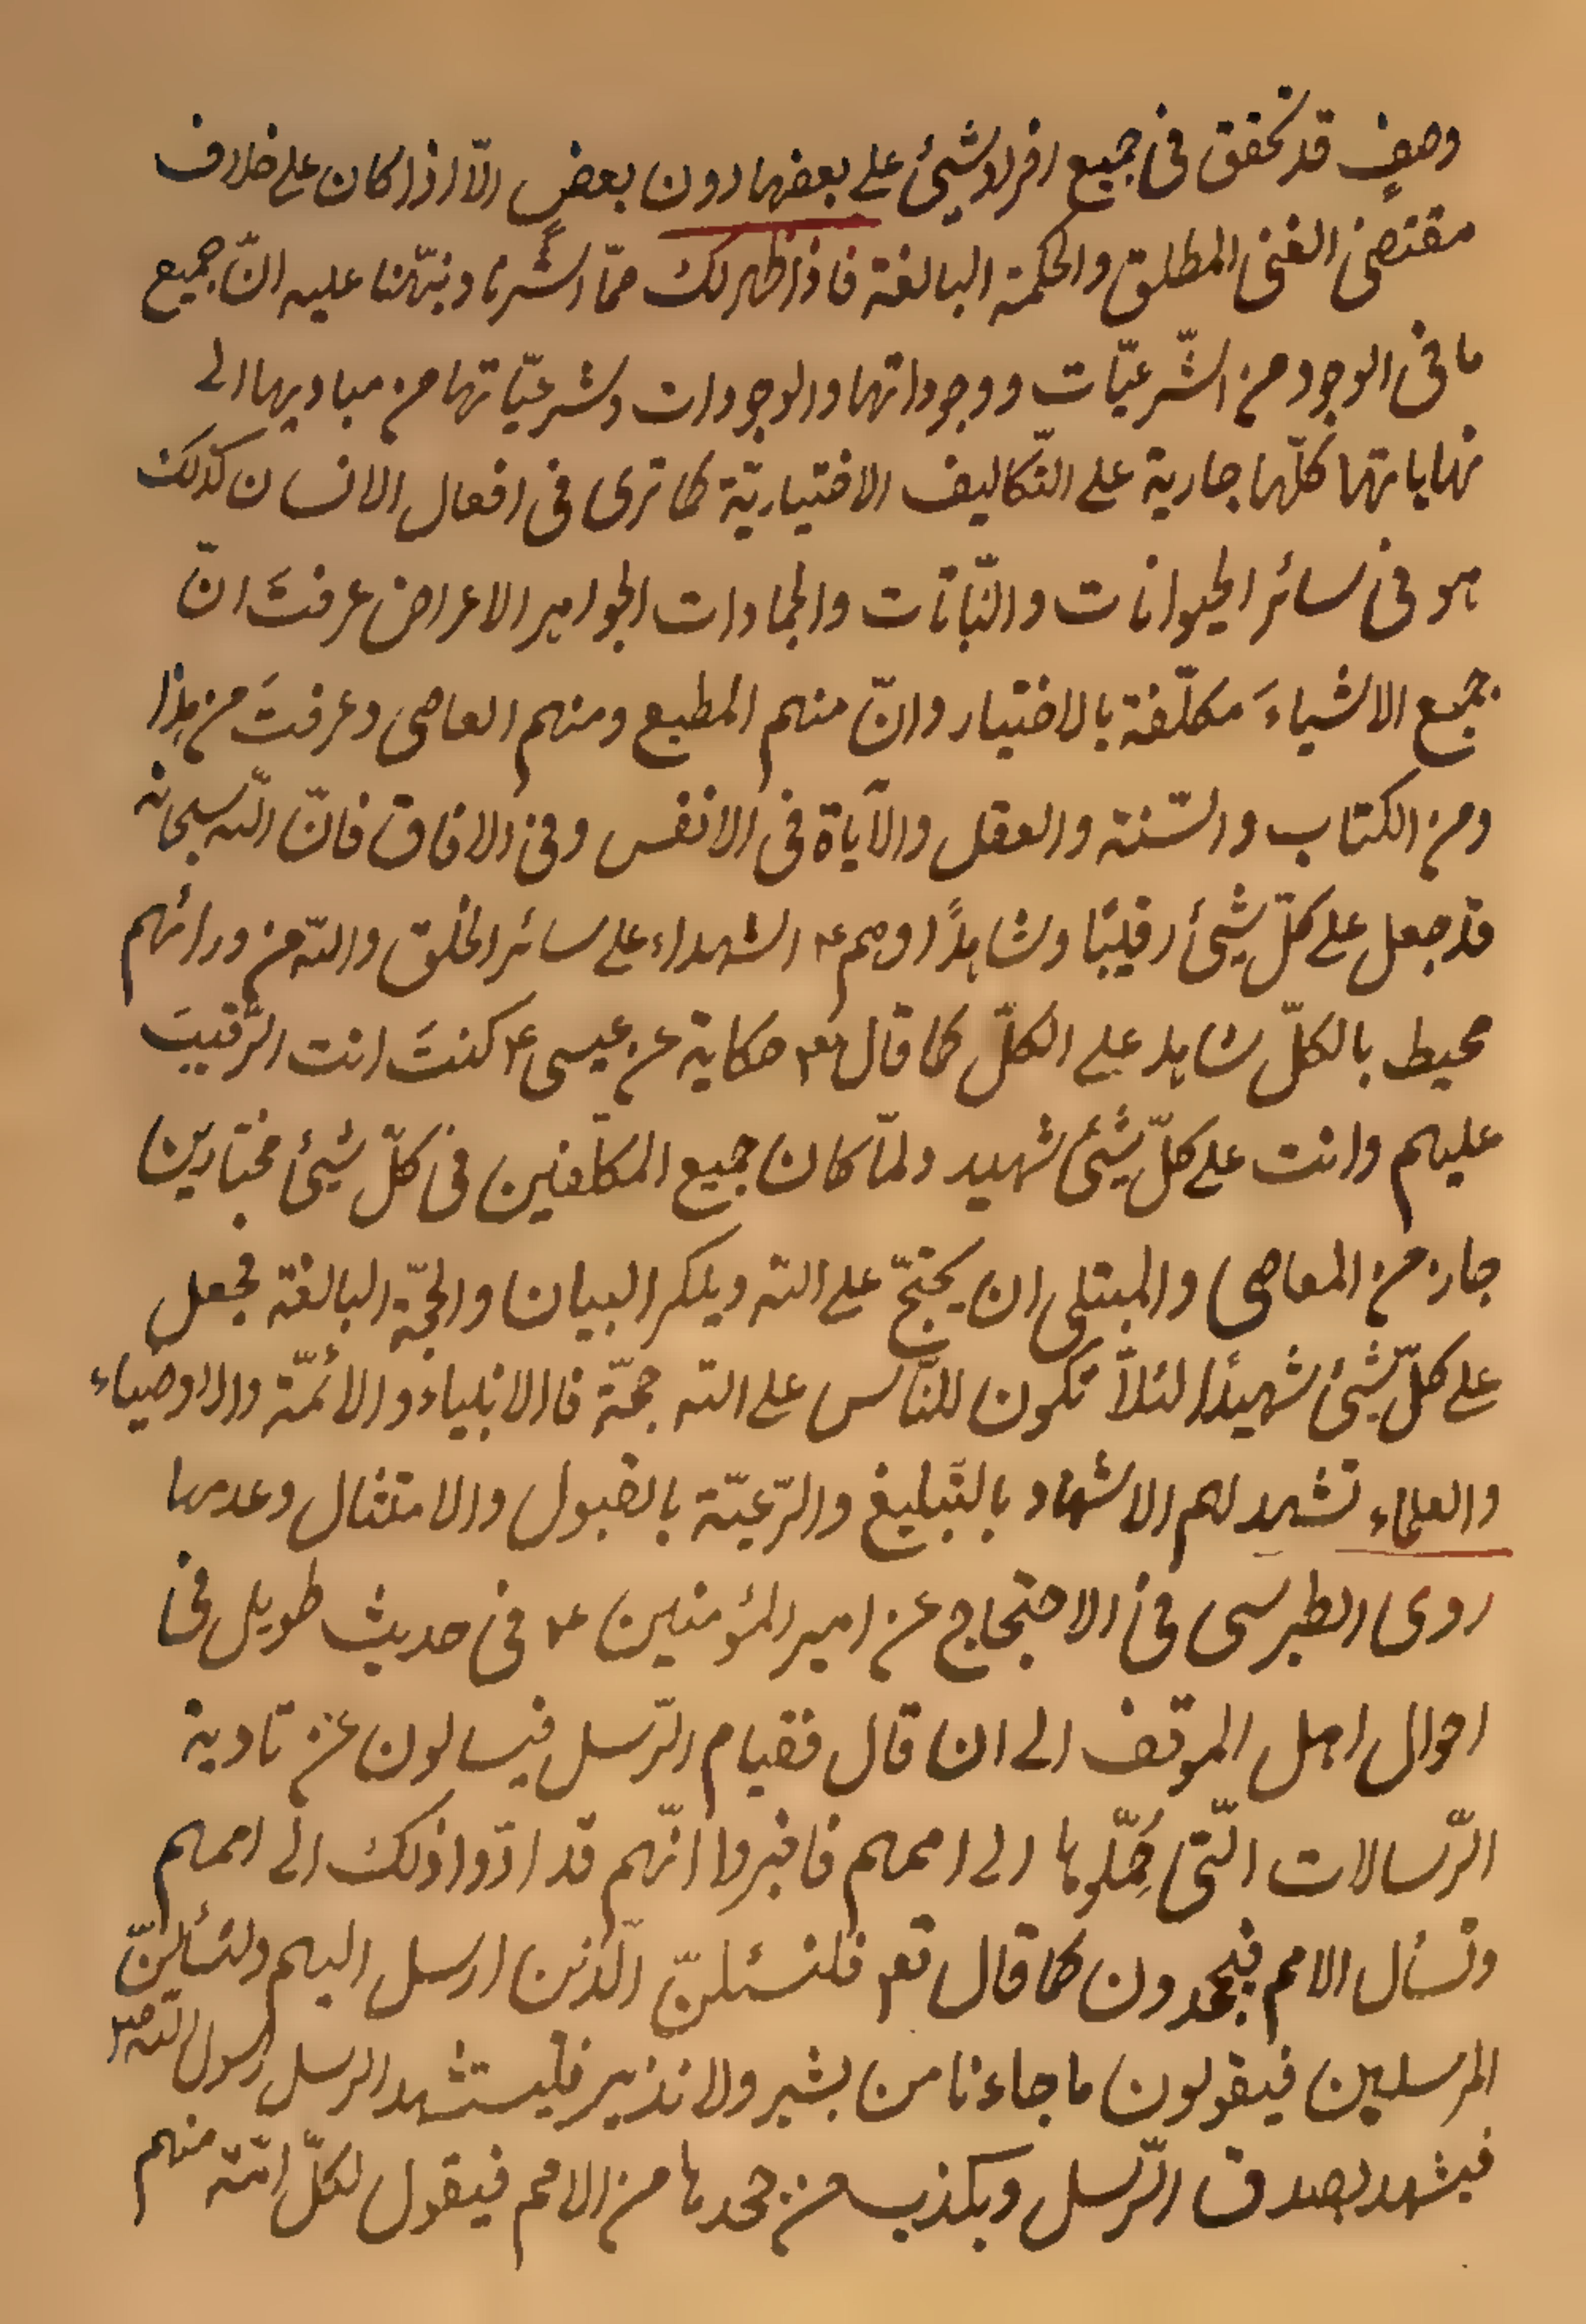 وصفٍ قد تحقق فی جمیع افراد شیئ علی بعضها دون بعضٍ الّا اذا کان علی خلاف
مقتضی الغنی المطلق والحکمة البالغة فاذا ظهر لک ممّا اشرنا ونبّهنا علیه انّ جمیع
ما فی الوجود من الشّرعیّات ووجوداتها والوجودات وشرعیّاتها من مبادیها الی
نهایاتها کلّها جاریة علی التّکالیف الاختیاریّة کما تری فی افعال الانسان کذلک
هو فی سائر الحیوانات والنّباتات والجمادات الجواهر الاعراض عرفتَ انّ
جمیع الاشیاءَ مکلّفة بالاختیار وانّ منهم المطیع ومنهم العاصی وعرفتَ من هذا
ومن الکتاب والسّنة والعقل والآیاة فی الانفس وفی الافاق فانّ اللّه سبحانه
قد جعل علی کلّ شیئ رقیبًا وشاهدًا وهم ع الشهداء علی سائر الخلق واللّه من ورائهم
محیط بالکلّ شاهد علی الکلّ کما قال تع حکایة عن عیسی ع کنتَ انت الرّقیبَ
علیهم وانت علی کلّ شیئ شهید ولمّا کان جمیع المکلّفین فی کلّ شیئ مختارین
جاز من المعاصی والمبتلی ان یحتجّ علی اللّه وینکر البیان والحجّة البالغة فجعل
علی کلّ شیئ شهیدًا لئلّا تکون للنّاس علی اللّه حجّة فاالانبیاء والائمّة والاوصیاء
والعلماء تشهد لهم الاشهاد بالتّبلیغ والرّعیّة بالقبول والامتثال وعدمها
روی الطبرسی فی الاحتجاج عن امیر المؤمنین ع فی حدیث طویل فی
احوال اهل الموقف الی ان قال فقیام الرّسل فیسالون عن تادیة
الرّسالات الّتی حُمِّلوها الی اممهم فاخبروا انّهم قد ادّوا ذلک الی اممهم
وتسأل الامم فیجحدون کما قال تع فلنسئلنّ الّذین ارسل الیهم ولنسألنّ
المرسلین فیقولون ما جاءنا من بشیر ولا نذیر فلیستشهد الرسل رسول اللّه ص
فیشهد بصدق الرّسل وبکذب من جحدها من الامم فیقول لکلّ امّة منهم